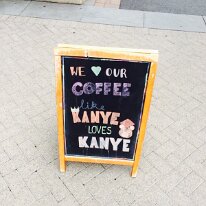 WE ♥ OUR
COFFEE
like
KANYE
LOVES
KANYE